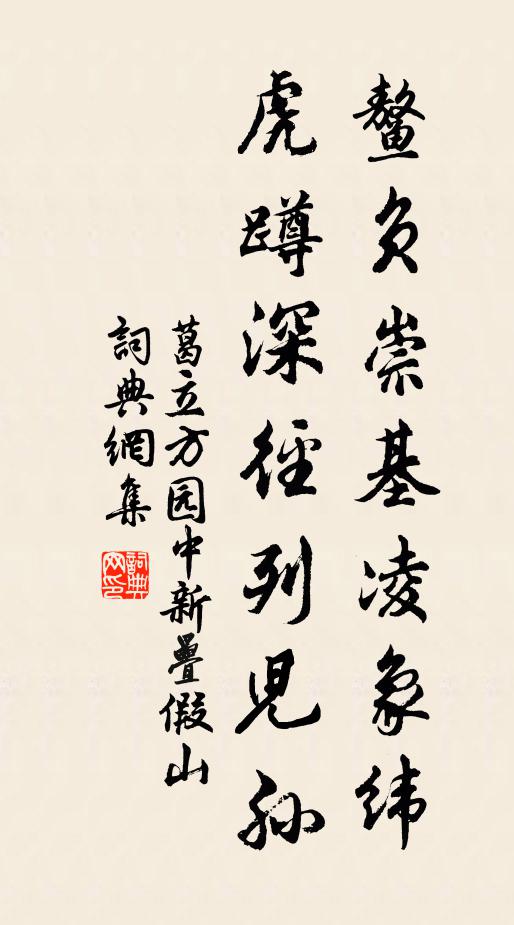 鳌负崇基凌象緯
虎蹲深徑列児孫
葛立方园中新疊假山
詞典網集
詞典
网印